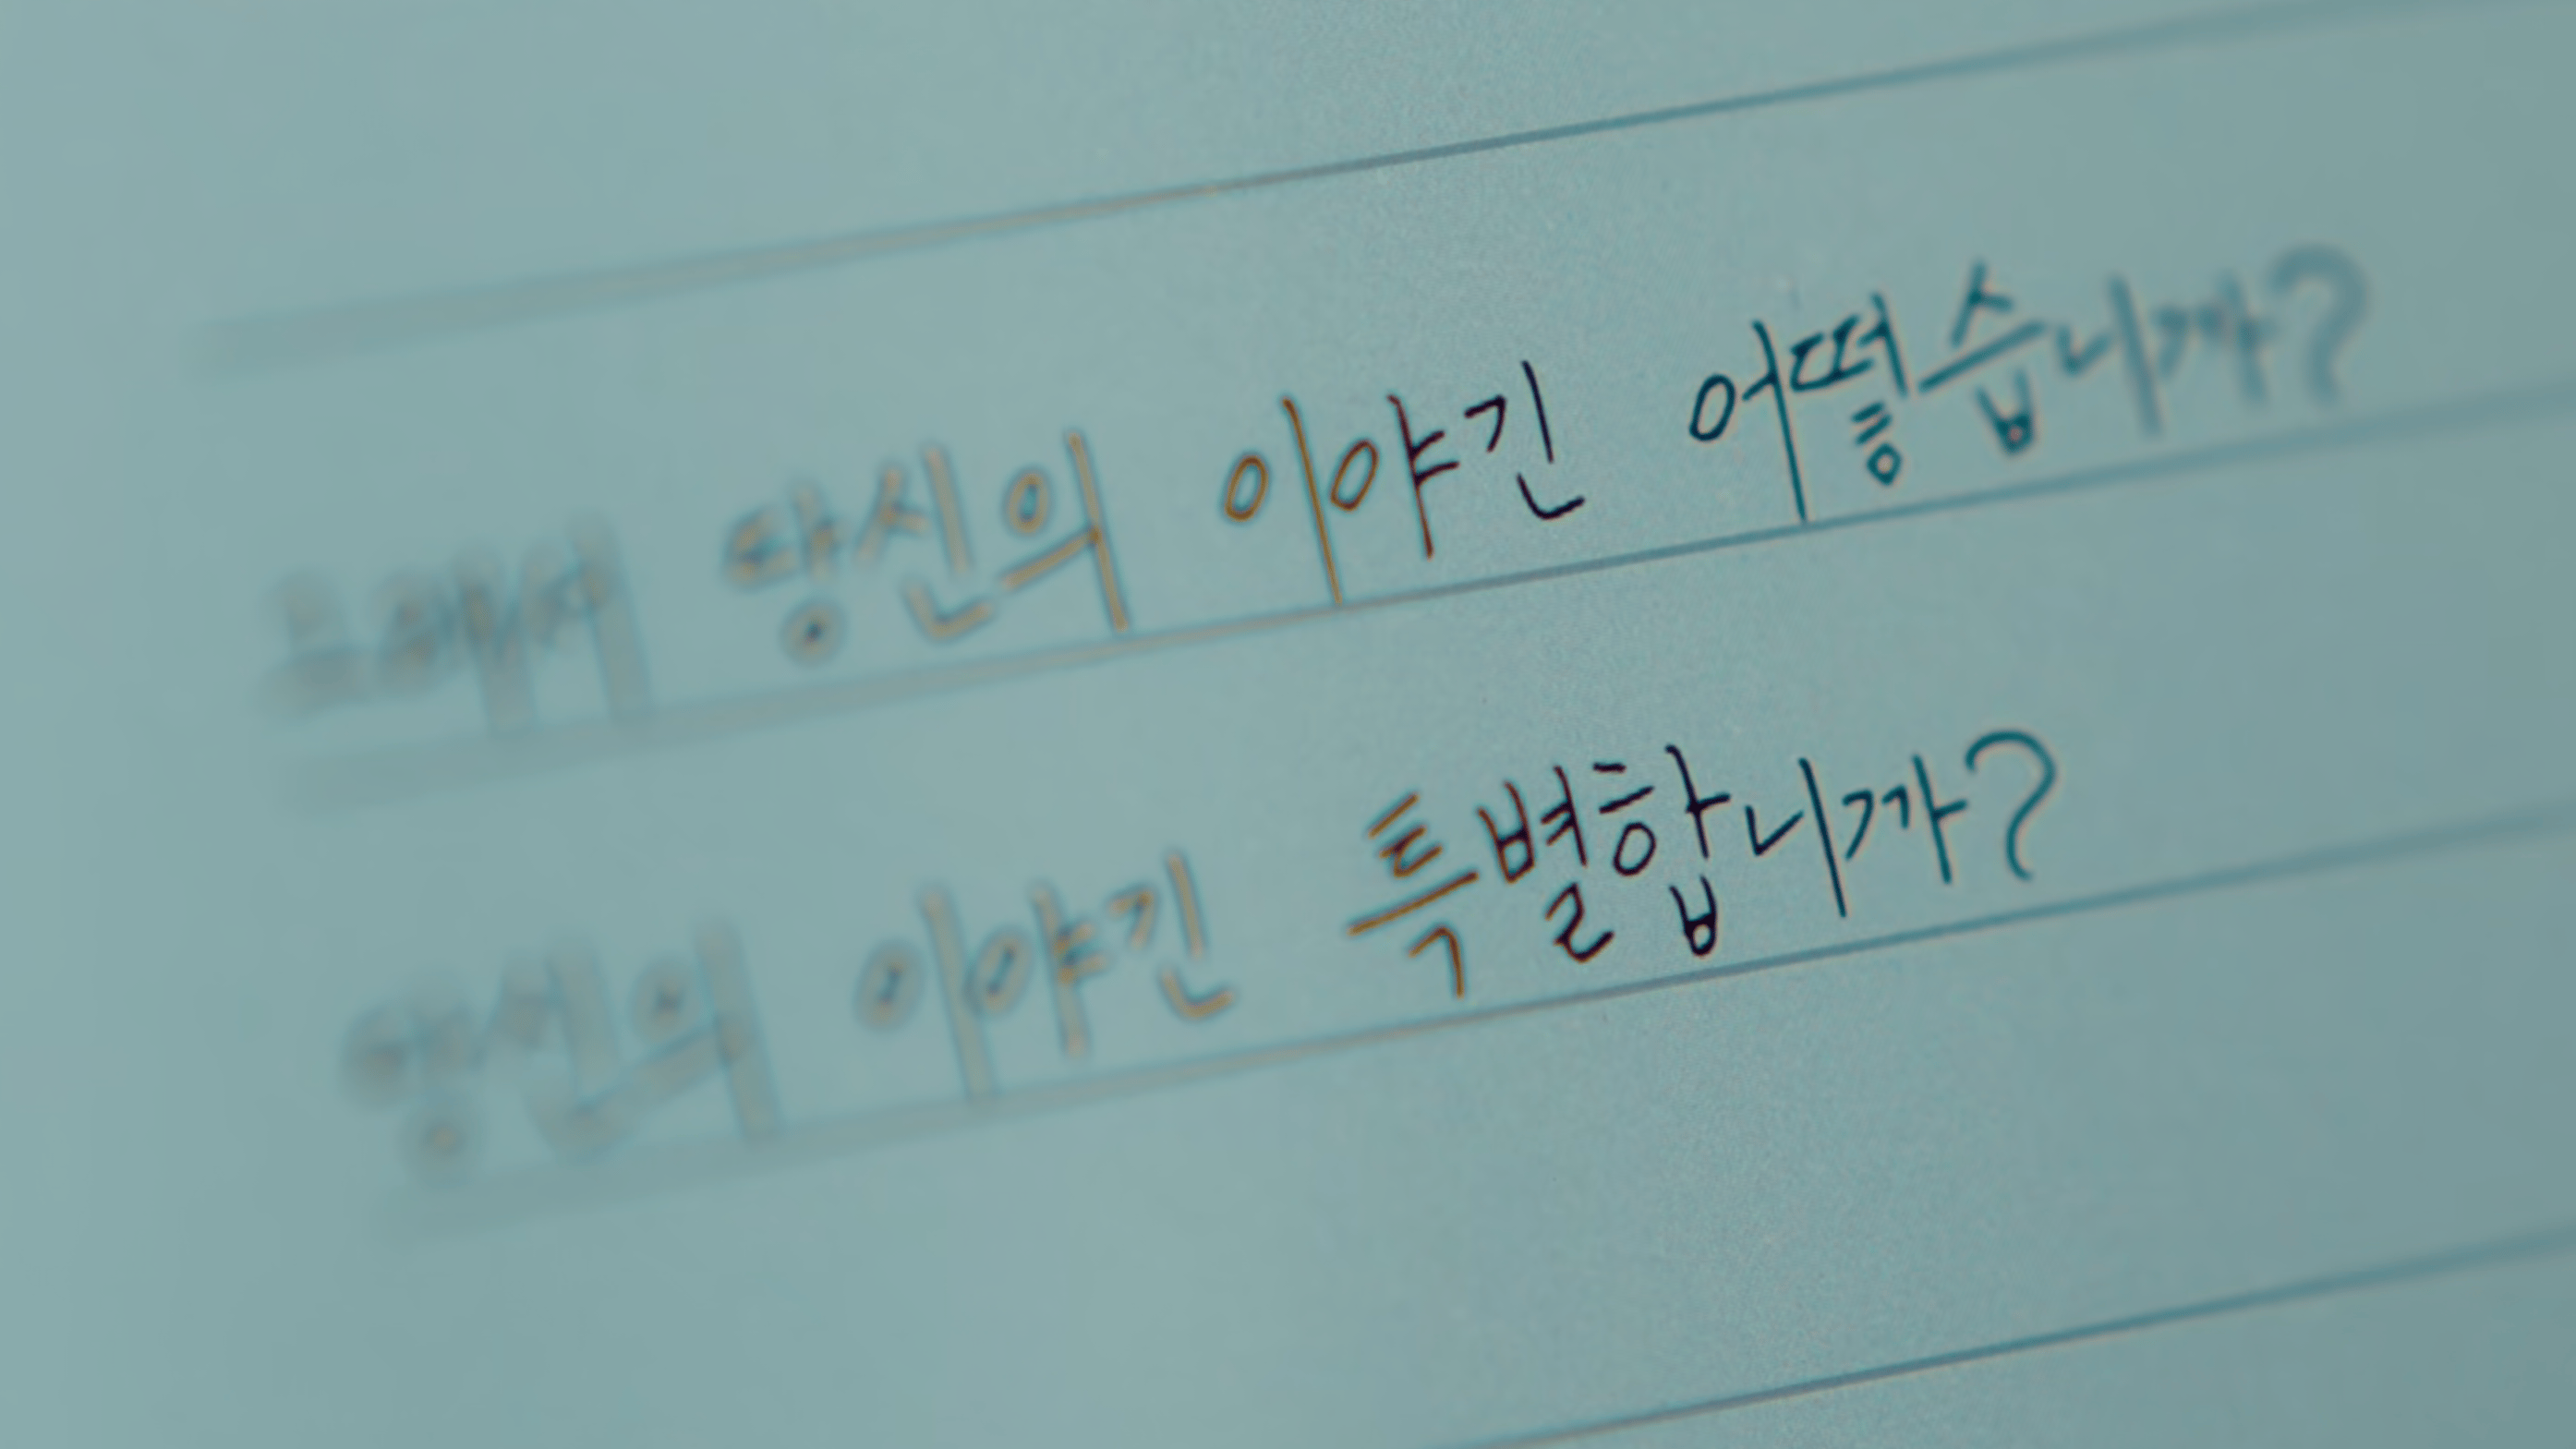 그래서 당신의 이야긴 어떻습니까?
당신의 이야긴 특별합니까?